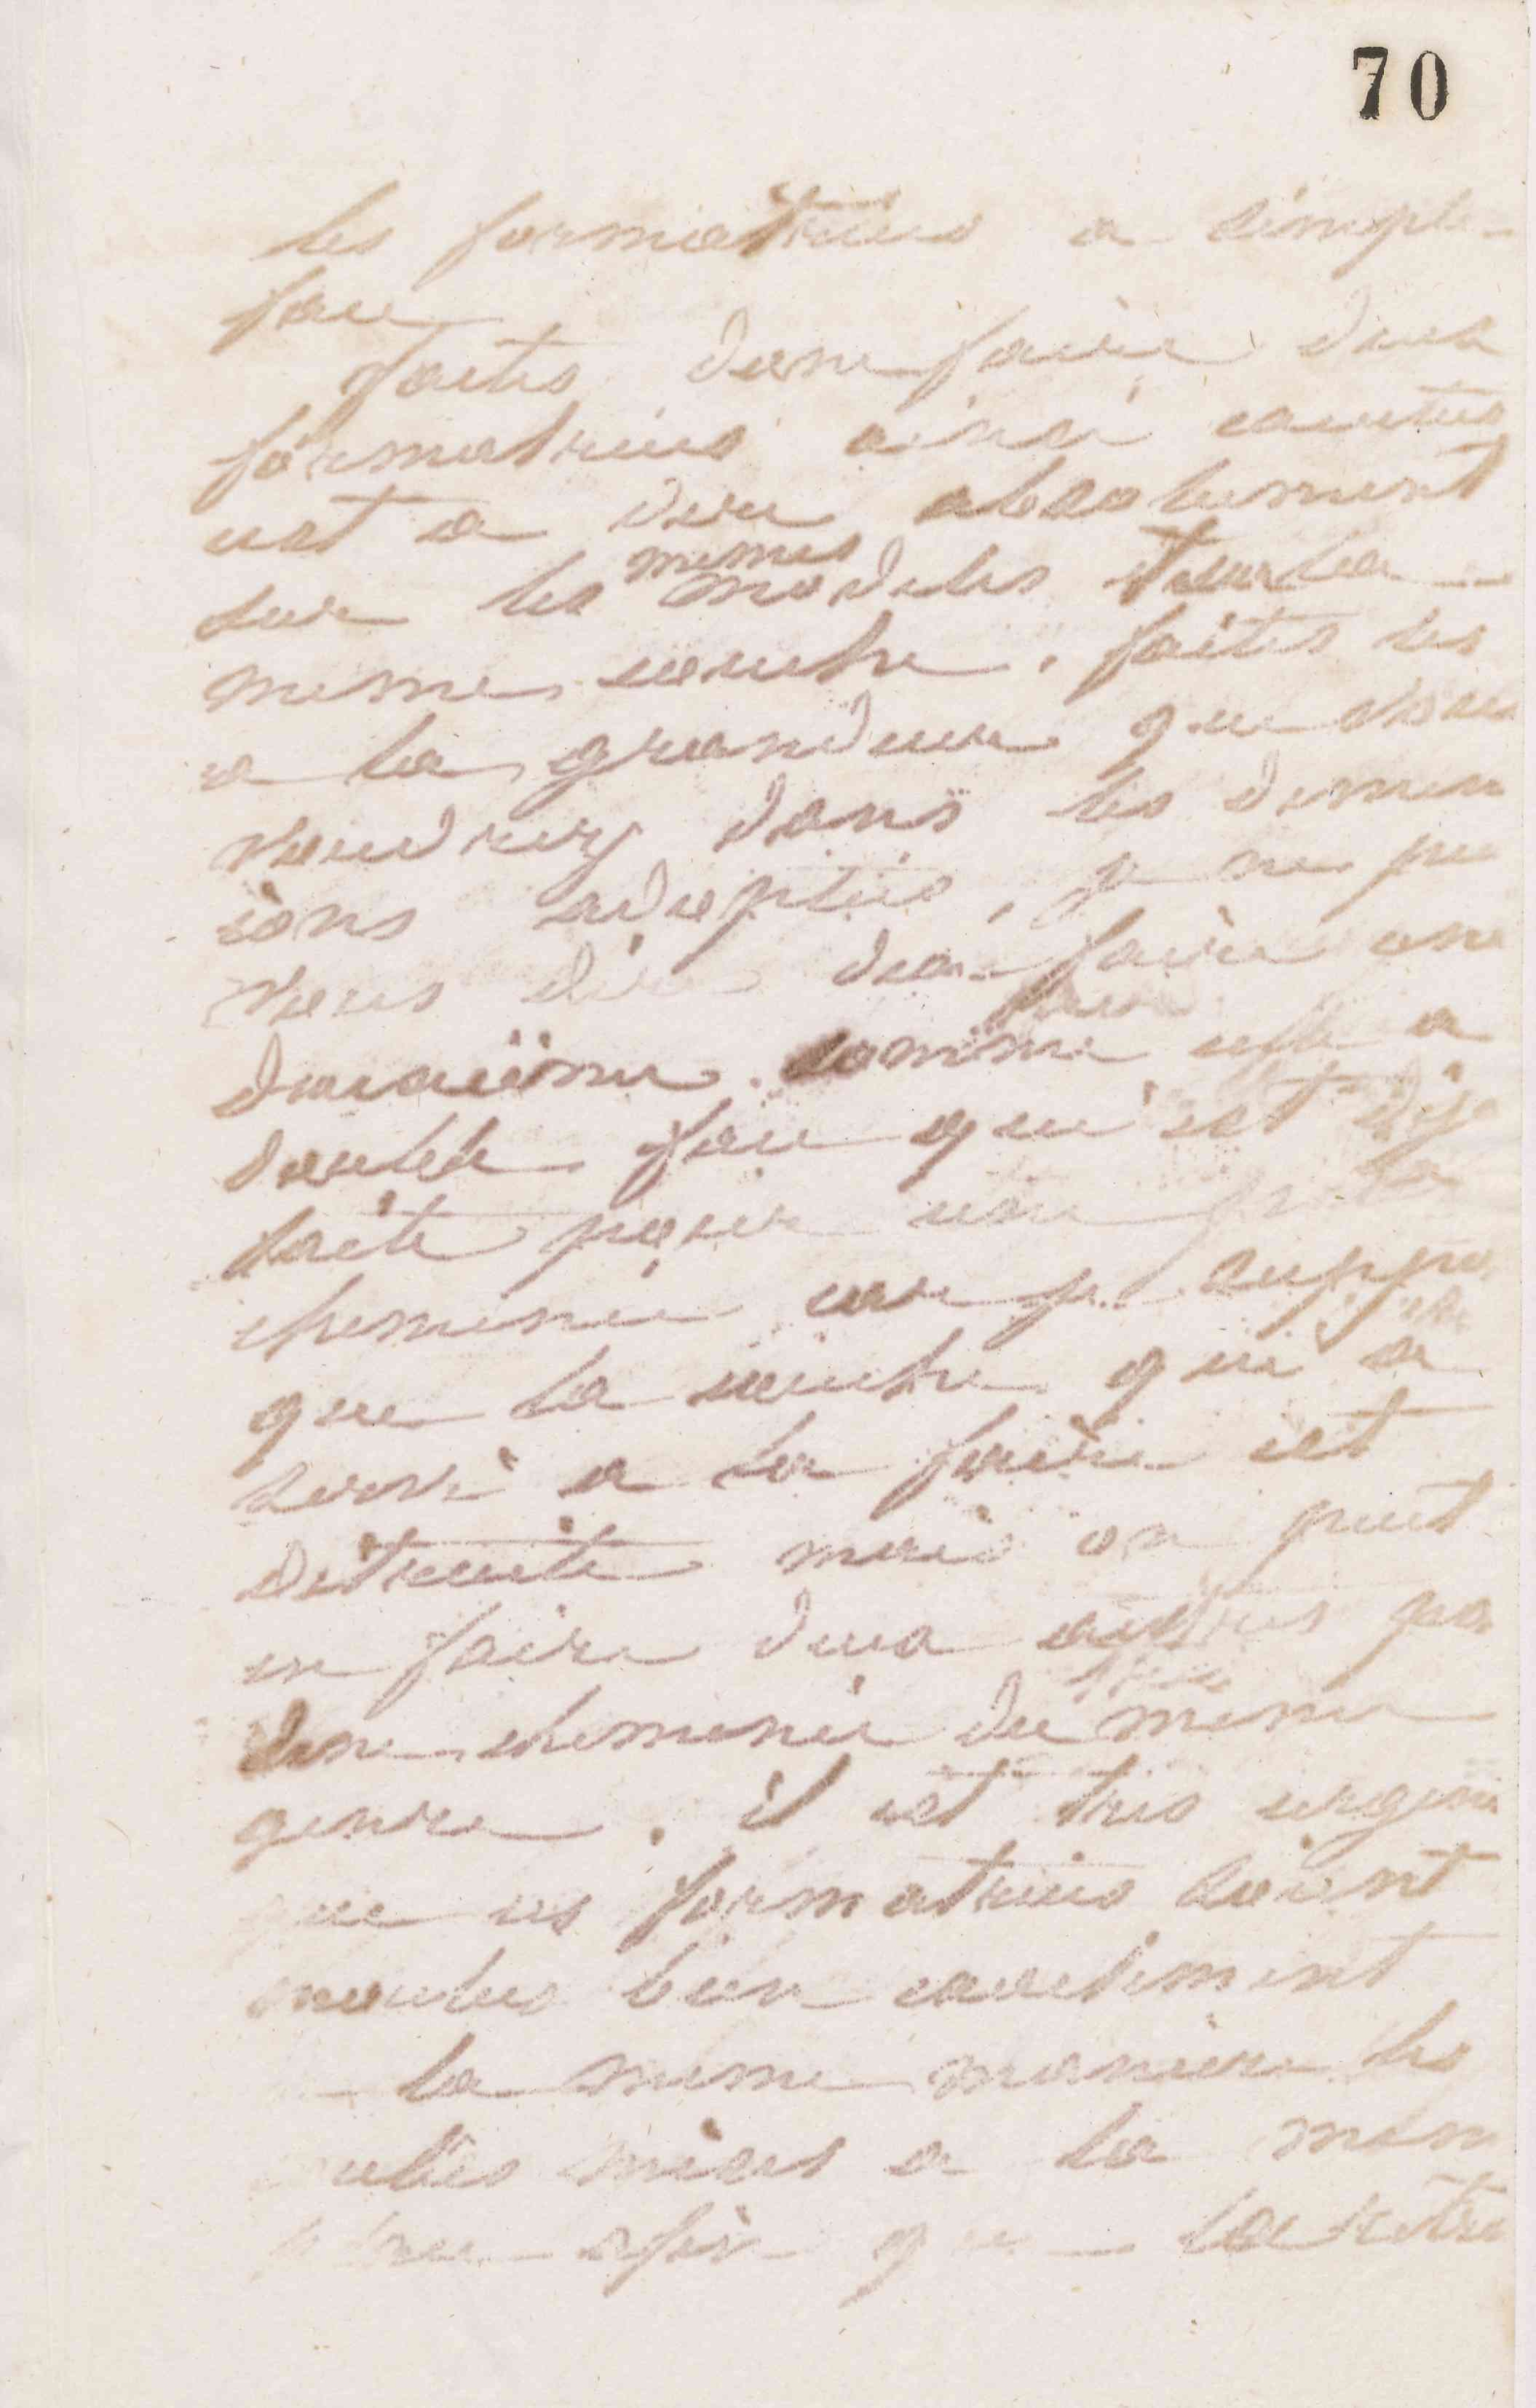 70
les formatrices a simple
face
faites donc faire deux
formatrices ainsi
cest a dire absolument
mêmes
sur les modeles et sur la
meme couche. faites les
a la grandeur que vous
voudrez dans les dimen
sions adoptées, je ne pu
vous dire den faire une
deuxième comme celle a
double face qui est déja
faite pour une
cheminée car je suppo
que la couche qui a
servi a la faire est
détruite mais on peut
en faire deux autres pa
dune cheminée du meme
genre. il est tres urgent
que ces formatrices soient
moulees bien exactement
la meme maniere les
mises a la mem
afin que